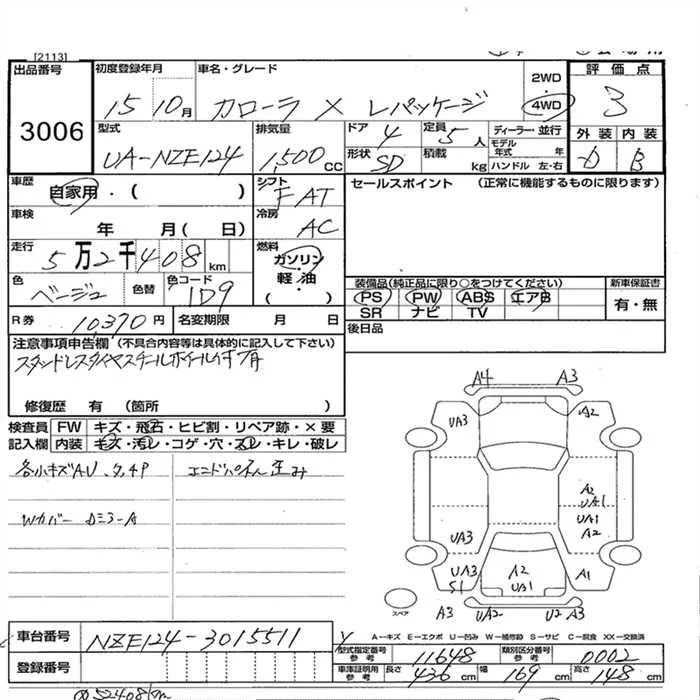 [2113]
出品番号 3006
初度登録年月 15 10月
車名・グレード カローラ X Lパッケージ
2WD 4WD
評価点 3
外装 D 内装 B
型式 UA-NZE124
排気量 1,500 CC
ドア 4 定員 5人
形状 SD 積載 kg
ディーラー・並行
モデル年式 年
ハンドル 左・右
車歴 自家用・( )
シフト FAT
車検 年 月( 日)
冷房 AC
走行 5万2千408km
燃料 ガソリン 軽油・( )
色 ベージュ 色替 色コード 1D9
R券 10,370円 名変期限 月 日
セールスポイント (正常に機能するものに限ります)
装備品(純正品に限り○をつけてください)
PS PW ABS エアB
SR ナビ TV
新車保証書 有・無
後日品
注意事項申告欄 (不具合内容等は具体的に記入して下さい)
スタッドレスタイヤスチールホイール付
修復歴 有 (箇所 )
検査員記入欄
FW キズ・飛石・ヒビ割・リペア跡・×要
内装 キズ・汚レ・コゲ・穴・スレ・キレ・破レ
各小キズAU
エンドパネル歪み
Wカバー
A4 A3
UA3 A2
A2
UA1
UA1
A2
UA3
UA3
S1
A2
UA1
A1
スペア
A3 UA2 U2 A3
A-キズ E-エクボ U-凹み W-補修跡 S-サビ C-腐食 XX-交換済
車台番号 NZE124-3015511
登録番号
型式指定番号参考 11648
類別区分番号参考 0002
車庫証明用参考 長さ 436cm 幅 169cm 高さ 148cm
52408km